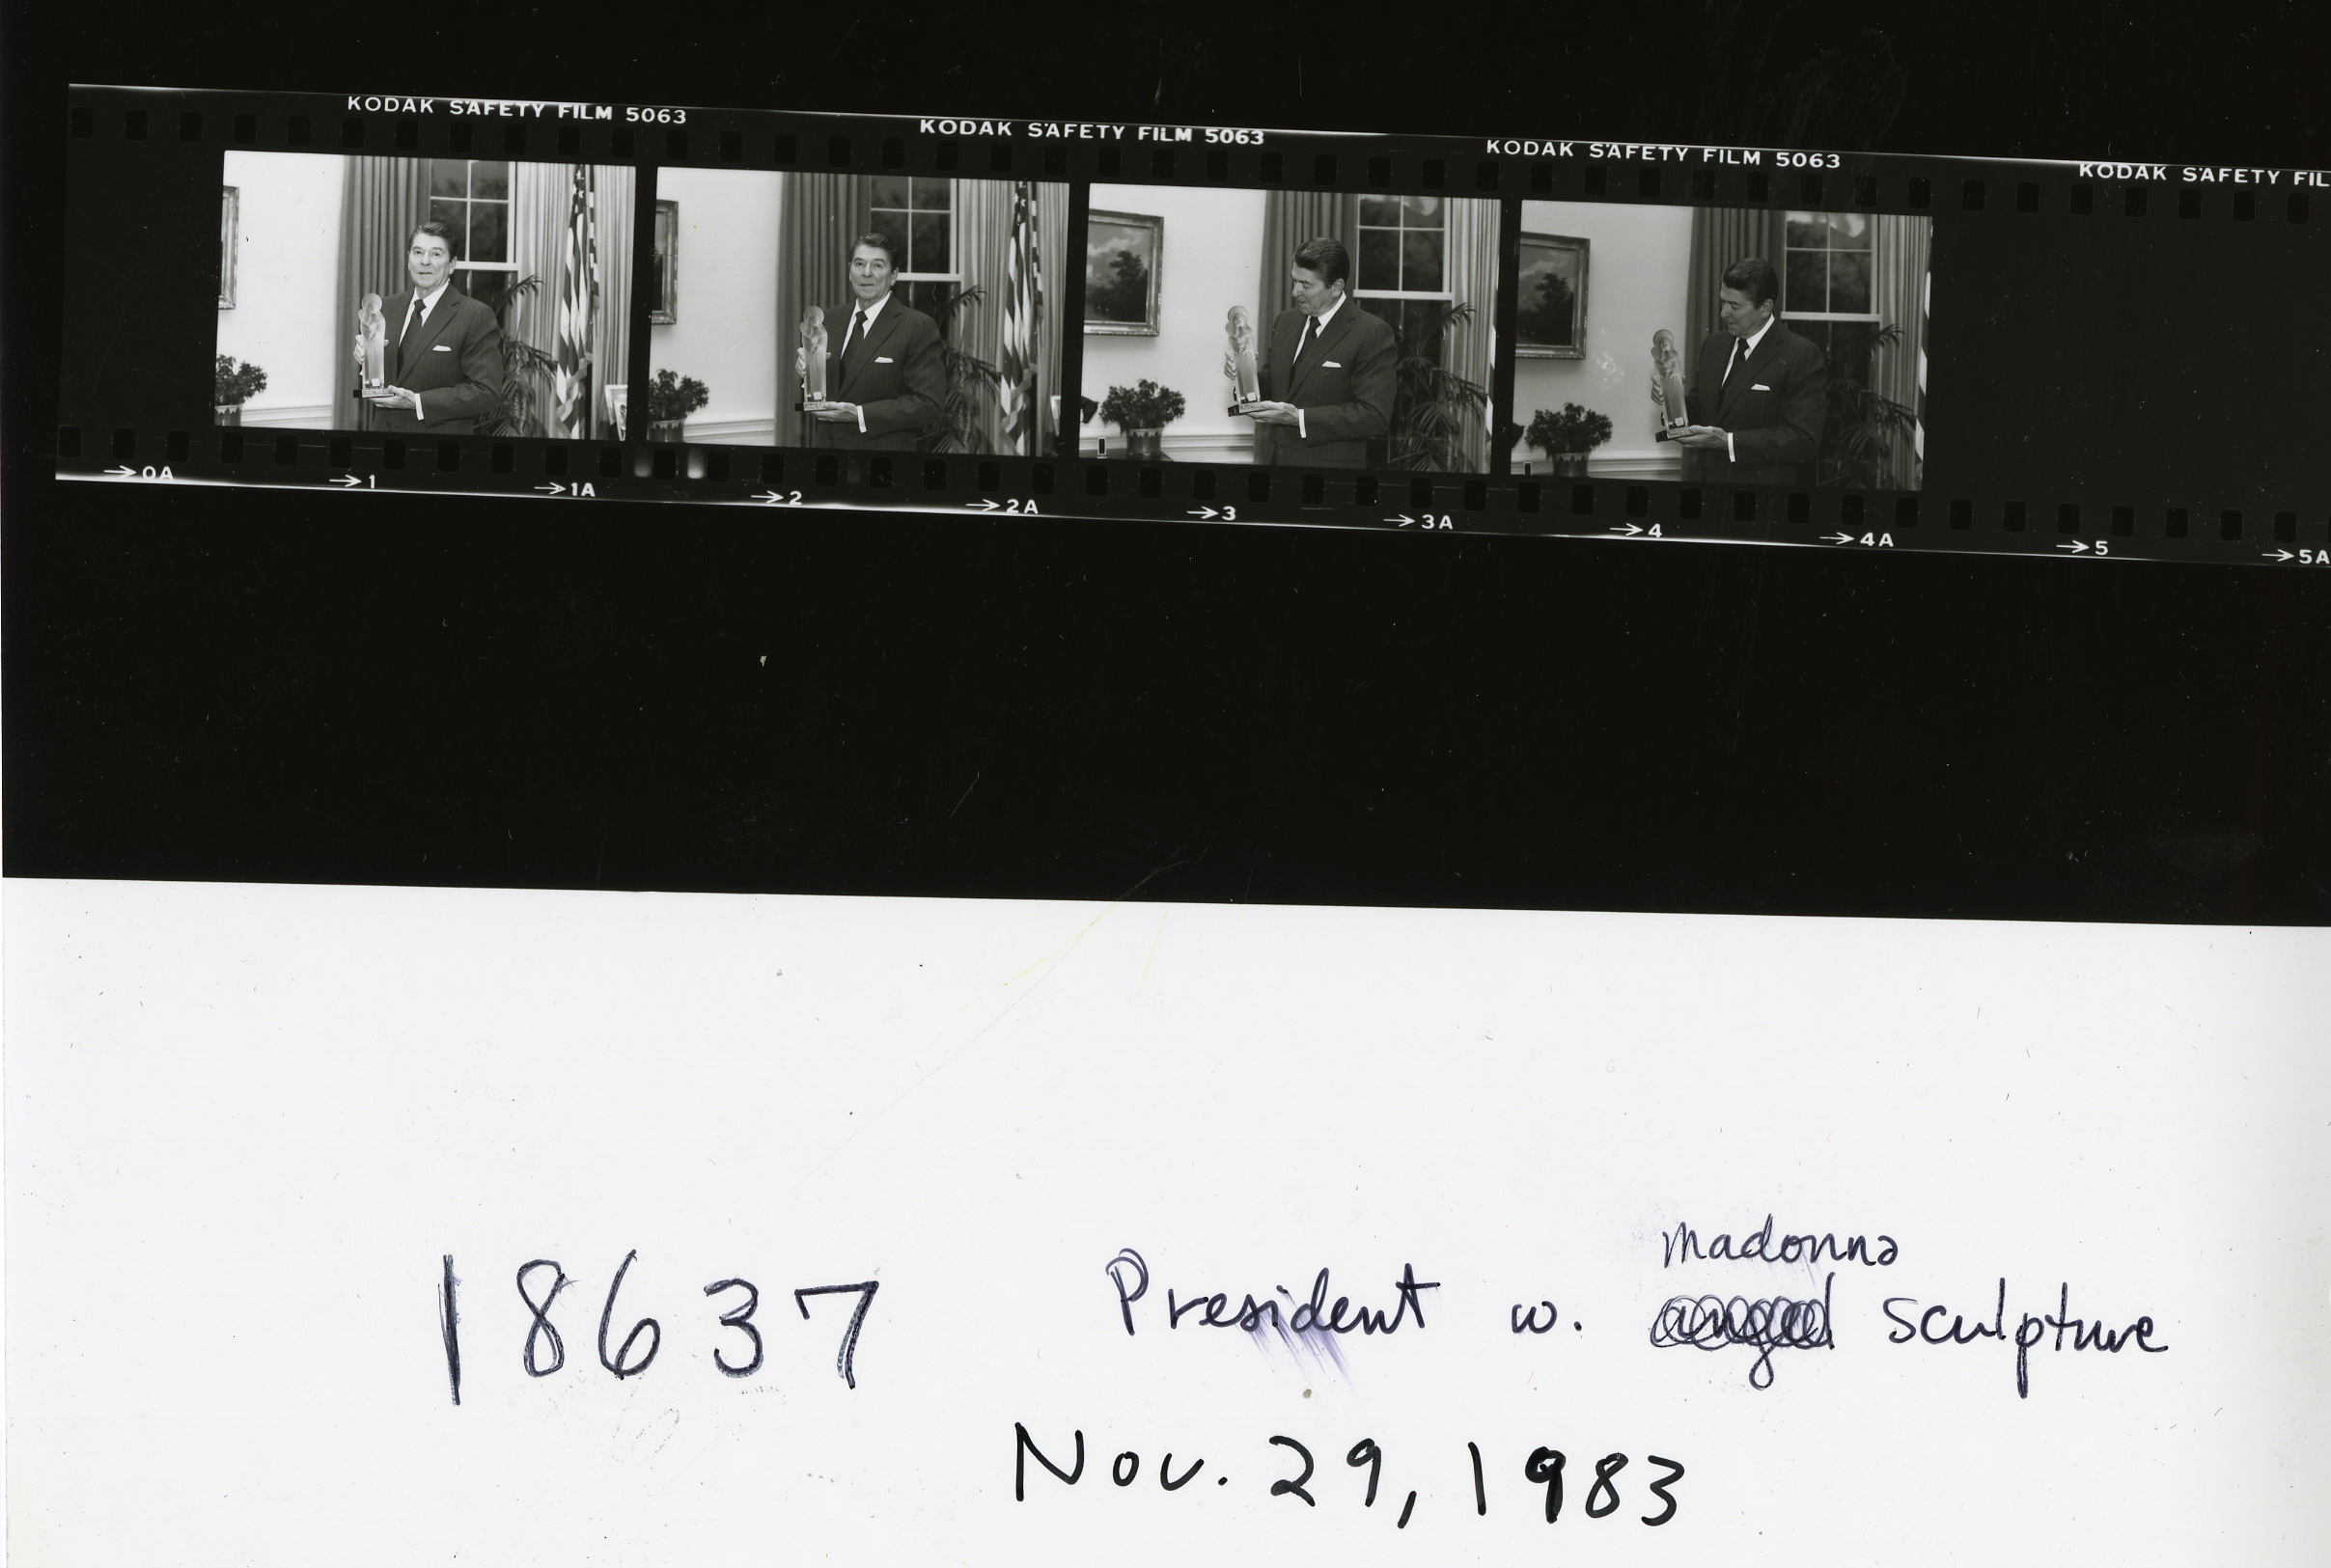 KODAK SAFETY FILM 5063 KODAK SAFETY FILM 5063 KODAK SAFETY FILM 5063 KODAK SAFETY FIL
→0A →1 →1A →2 →2A →3 →3A →4 →4A →5 →5A
madonna
18637 President w. angel sculpture
Nov. 29, 1983